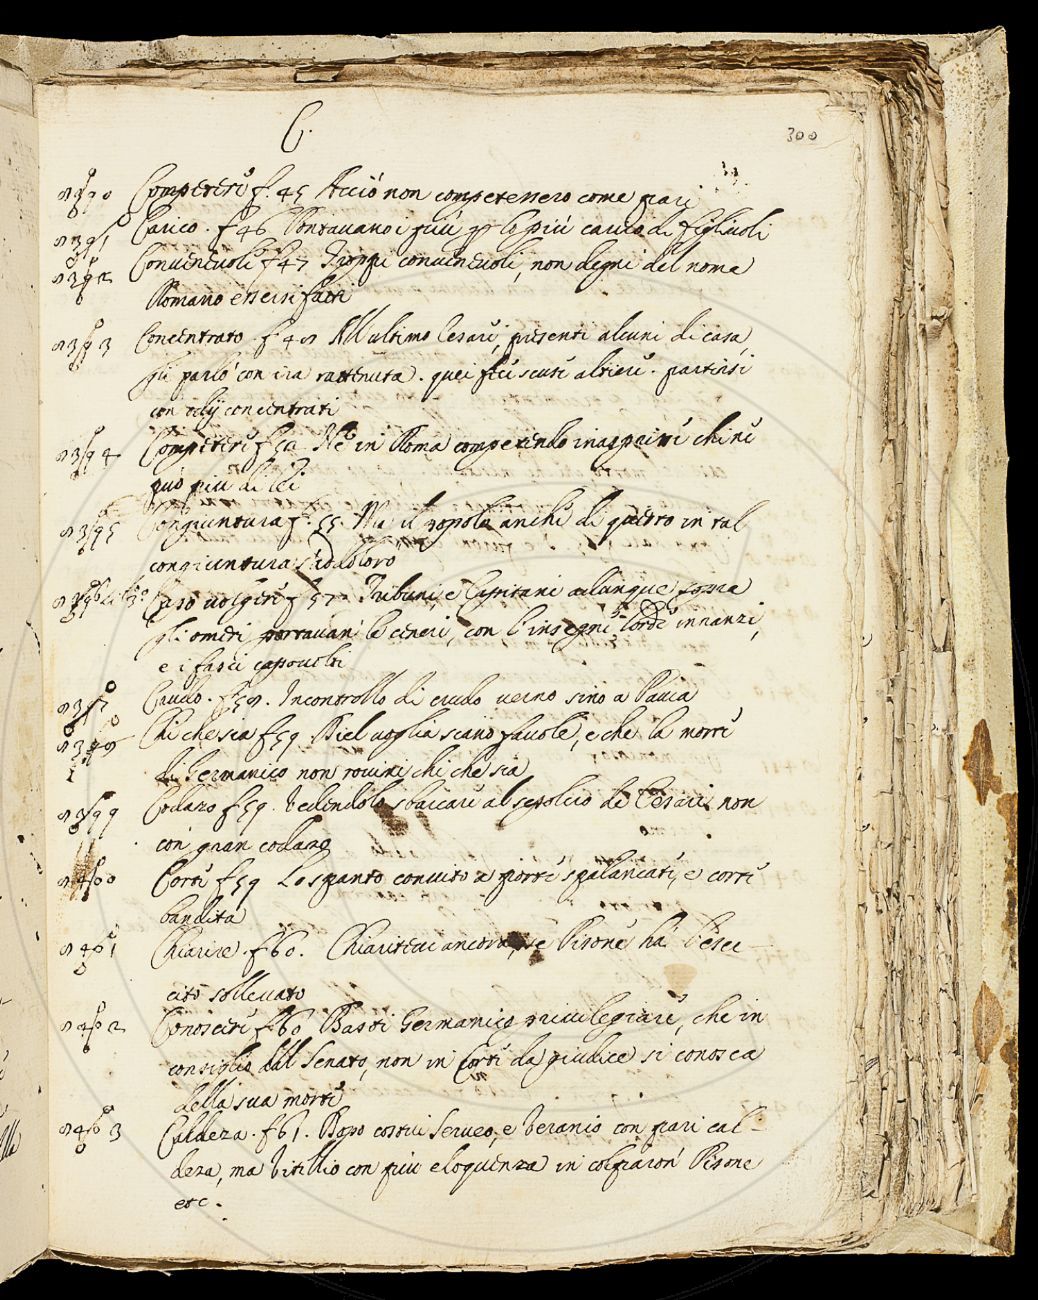 C.
300
Competere f. 45 Acciò non competessero come pari
Carico. f 46 Contavano i più per lo più carico di figliuoli
Convenevole f 47 Trionfi convenevoli, non degni del nome
Romano essersi fatti
Concentrato. f 48 All'ultimo Cesare, presenti alcuni di casa
gli parlò con ira rattenuta. quei fece scuse altiere. partirsi
con odij concentrati
Competere f 50 Nè in Roma competendo inasprire chi ne
può più di lei
Congiuntura f. 55. Ma il popolo anche di questo in tal
congiuntura si dolora
Capo volgere f 57 Tribuni e Capitani adunque sopra
gli omeri portavan le ceneri, con l'insegne lorde innanzi,
e i fasci capovolti
Crudo. f 58. Incontrollo di crudo verno sino a Pavia
Chi che sia f 59 Riel voglia siano favole, e che la morte
di Germanico non rovini chi che sia
Codazo f 59. Vedendolo sbarcare al sepolcro de Cesari non
con gran codazo
Corte f 59 Lo spanto convito a porte spalancate, e corte
bandita
Chiarire. f 60. Chiaritevi ancora, se Pisone ha l'eser
cito sollevato
Conoscere f 60 Basti Germanico privilegiare, che in
consiglio dal Senato, non in Corte da giudice si conosca
della sua morte
Caldeza. f 61. Dopo costui Serveo, e Veranio con pari cal
deza, ma Vitellio con più eloquenza incolparon Pisone
etc.